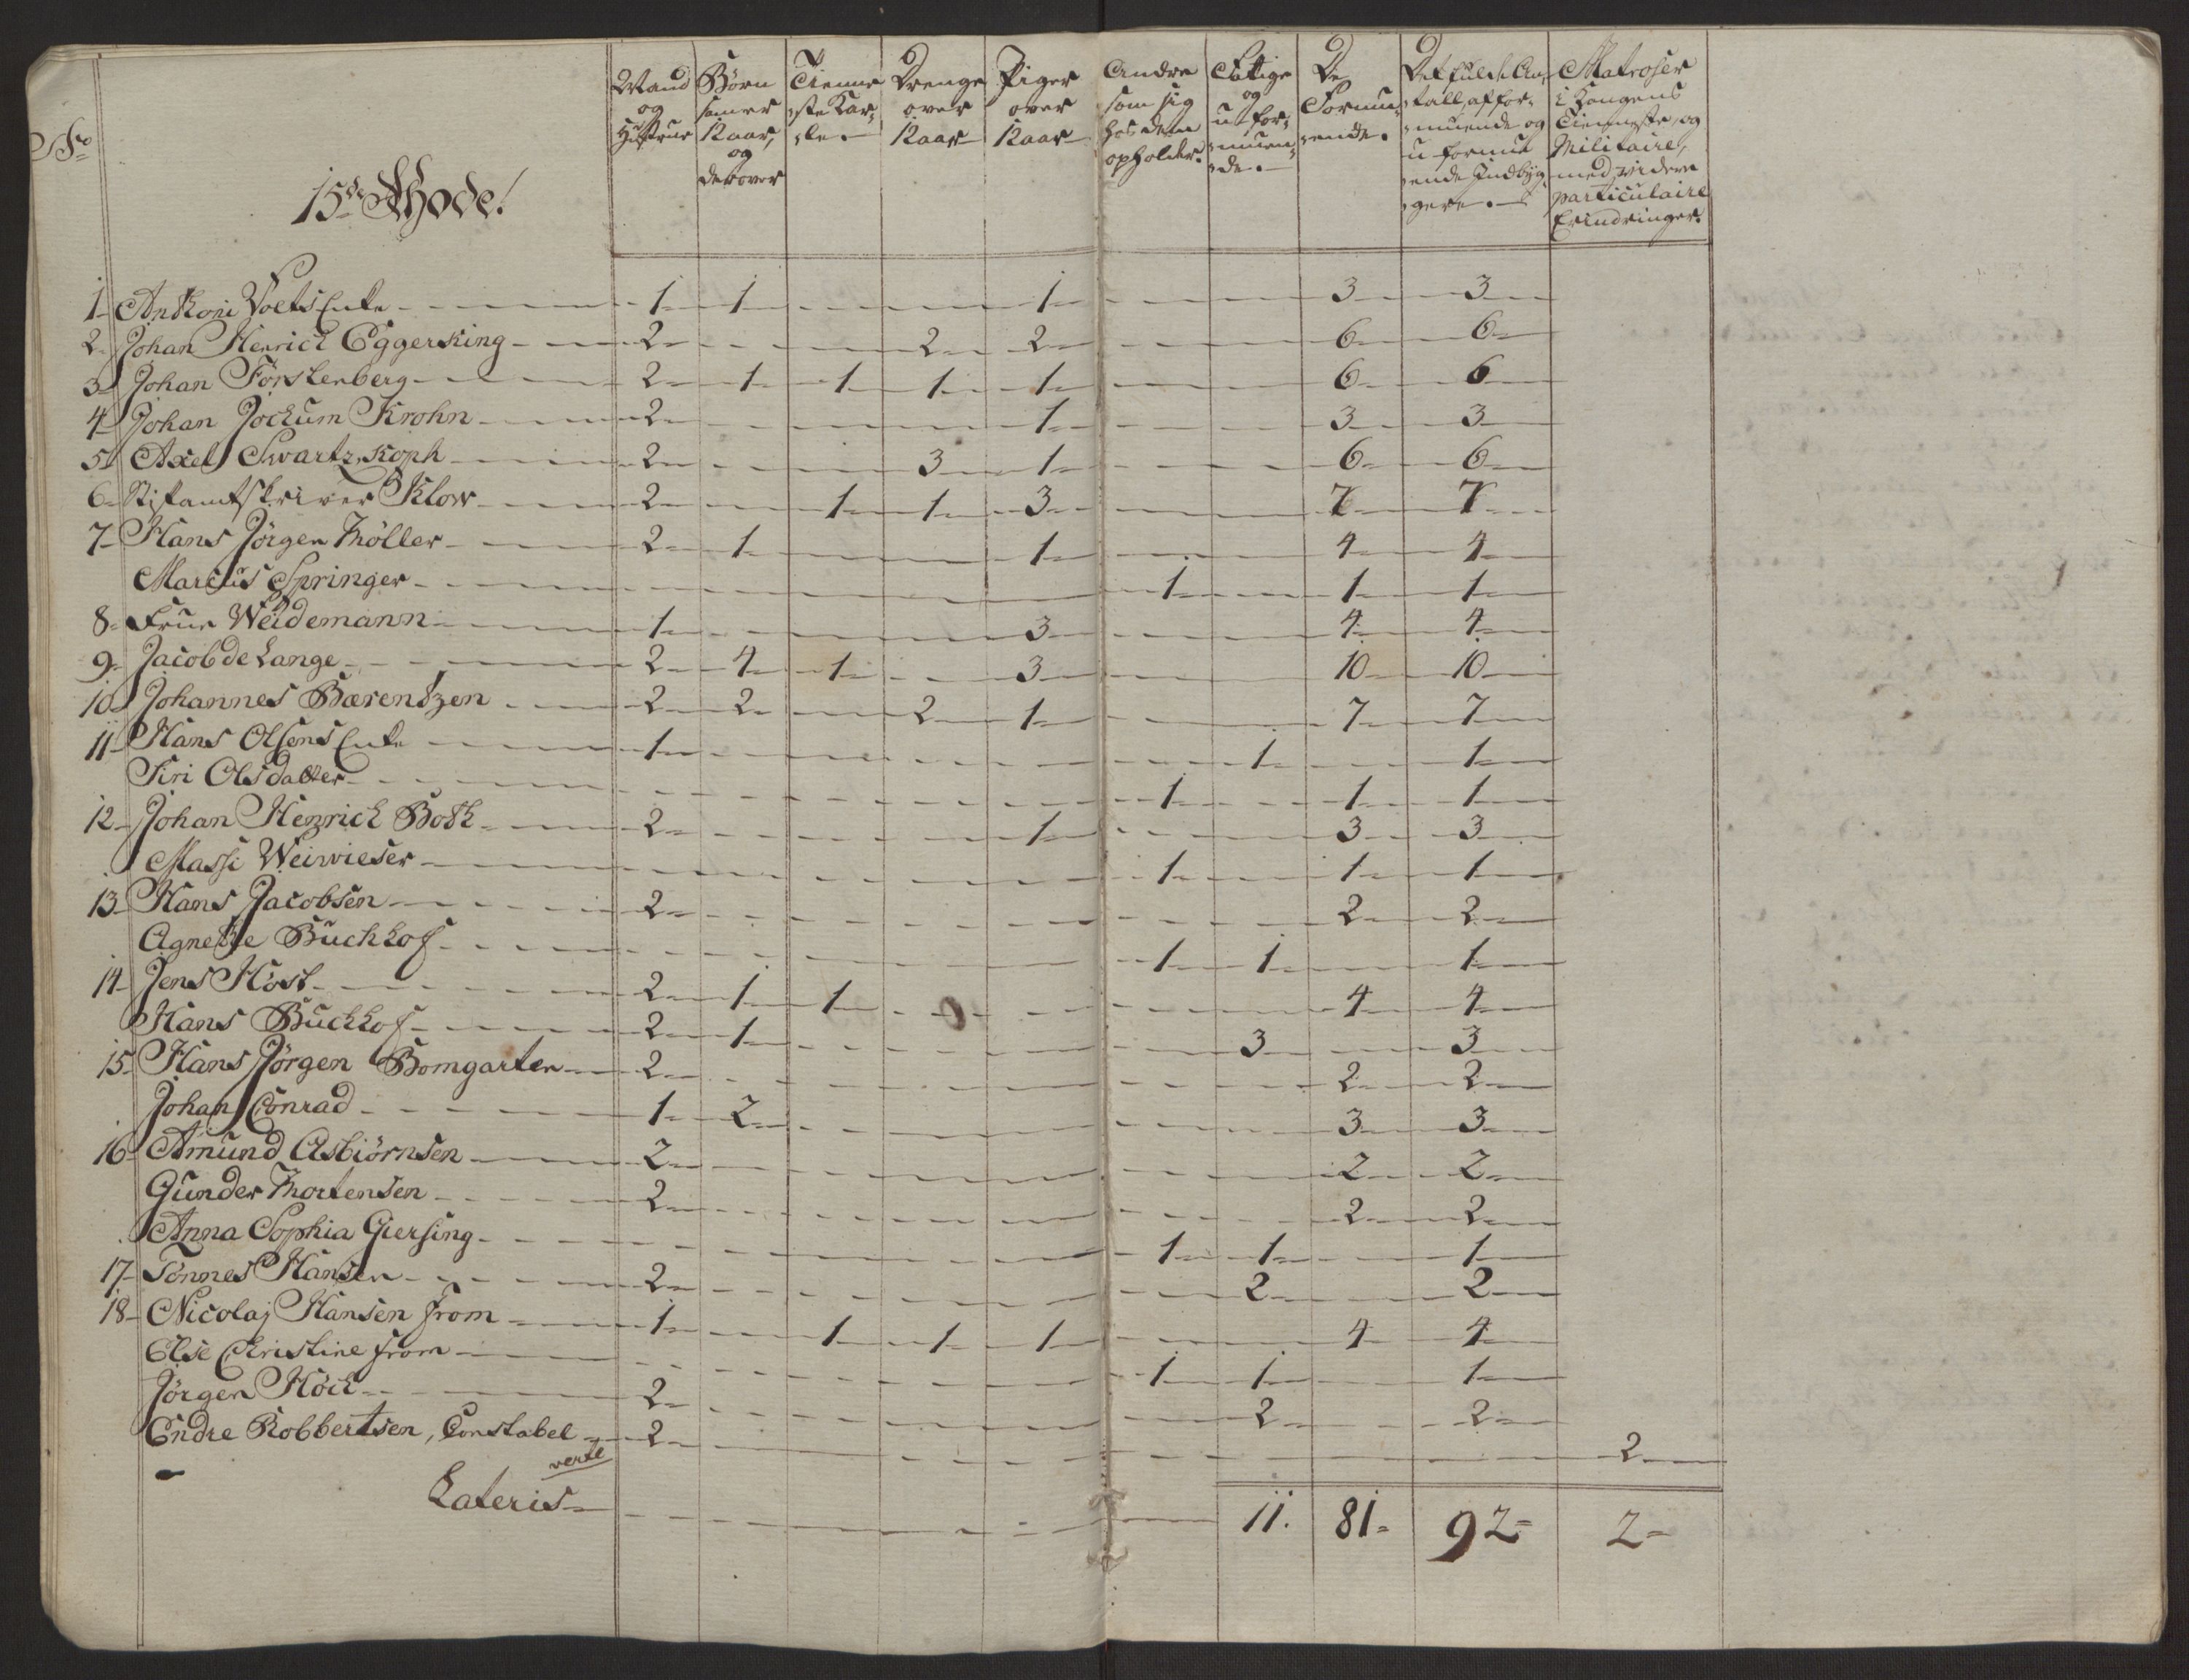 No
15de Rhode!
Mand og Hustrue
Børn som er 12 aar, og derover
Tienneste Karle.
Drenge over 12 aar
Piger over 12 aar
Andre som sig hos dem opholder.
Fattige og uformuende.
De Formuende.
Det fulde Antall af formuende og uformuende Indbyggere.
Matroser i Kongens Tienneste, og Militaire, med videre particulaire Erindringer.
1 Anthoni Voets Enke 1 1 1 3 3
2 Johan Henrich Eggersking 2 2 2 6 6
3 Johan Førstenberg 2 1 1 1 1 6 6
4 Johan Jochum Krohn 2 1 3 3
5 Axel Swartzkoph 2 3 1 6 6
6 Stiftamtskriver Klow 2 1 1 3 7 7
7 Hans Jörgen Møller 2 1 1 4 4
Marcus Springer 1 1 1
8 Frue Weidemann 1 3 4 4
9 Jacob de Lange 2 4 1 3 10 10
10 Johannes Bærentzen 2 2 2 1 7 7
11 Hans Olsens Enke 1 1 1
Siri Olsdatter 1 1 1
12 Johan Henrich Both 2 1 3 3
Massi Weiwieser 1 1 1
13 Hans Jacobsen 2 2 2
Agnethe Buchhof 1 1 1
14 Jens Høst 2 1 1 4 4
Hans Buchhof 2 1 3 3
15 Hans Jörgen Bomgarten 2 2 2
Johan Conrad 1 2 3 3
16 Amund Asbiørnsen 2 2 2
Gunder Mortensen 2 2 2
Anna Sophia Giersing 1 1 1
17 Tønnes Hansen 2 2 2
18 Nicolaj Hansen From 1 1 1 1 4 4
Else Christine From 1 1 1
Jörgen Höck 2 2 2
Endre Robbertsen, Constabel 2 2
verte
Lateris 11. 81 92 2